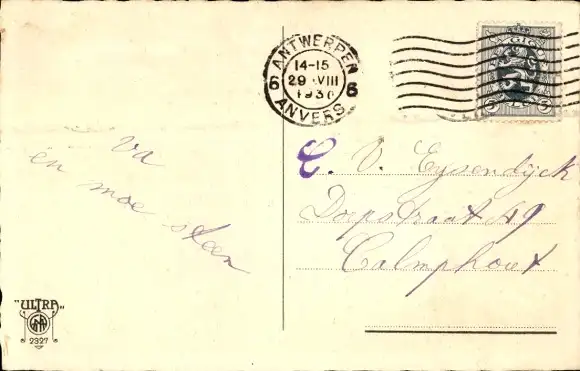 ANTWERPEN
14-15
29 VIII
1936
6 6
ANVERS
va
en moe steen
C. V. Eysendijck
Dorpstraat 49
Calmphout
"ULTRA"
2327